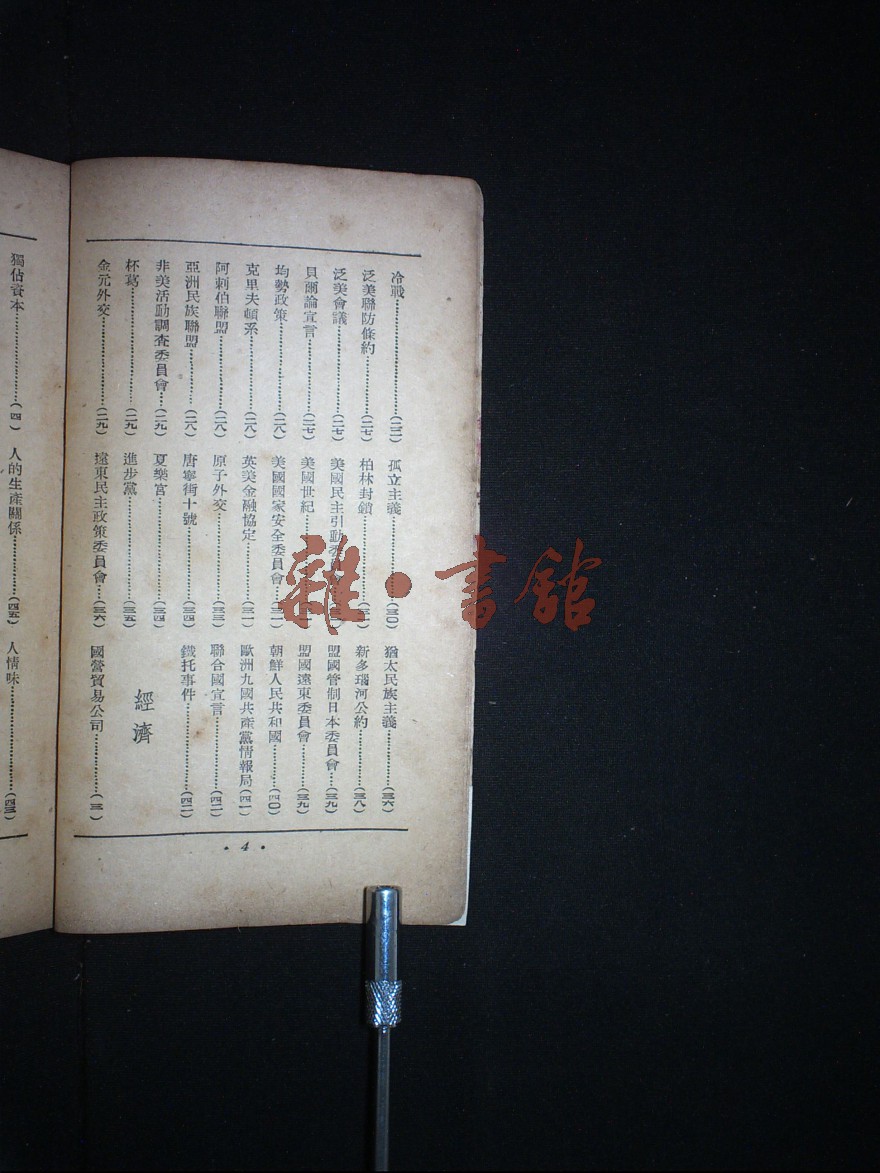 冷戰…………(二二)
泛美聯防條約…………(二七)
泛美會議…………(二七)
貝爾論宣言…………(二七)
均勢政策…………(二八)
克里夫頓系…………(二八)
阿剌伯聯盟…………(二八)
亞洲民族聯盟…………(二八)
非美活動調查委員會…(二九)
杯葛…………(二九)
金元外交…………(二九)
孤立主義…………(三〇)
柏林封鎖…………
美國民主引動委員會
美國世紀…………
美國國家安全委員會…(三一)
英美金融協定…………(三一)
原子外交…………(三三)
唐寧街十號…………(三四)
夏樂宮…………(三四)
進步黨…………(三五)
遠東民主政策委員會…(三六)
猶太民族主義…………(三六)
新多瑙河公約…………(三八)
盟國管制日本委員會…(三九)
盟國遠東委員會…………(三九)
朝鮮人民共和國…………(四〇)
歐洲九國共產黨情報局(四一)
聯合國宣言…………(四二)
鐵托事件…………(四二)
經濟
國營貿易公司…………(三)
·4·
獨佔資本…………(四)
人的生產關係…………(四五)
人情味…………(四三)
雜·書館